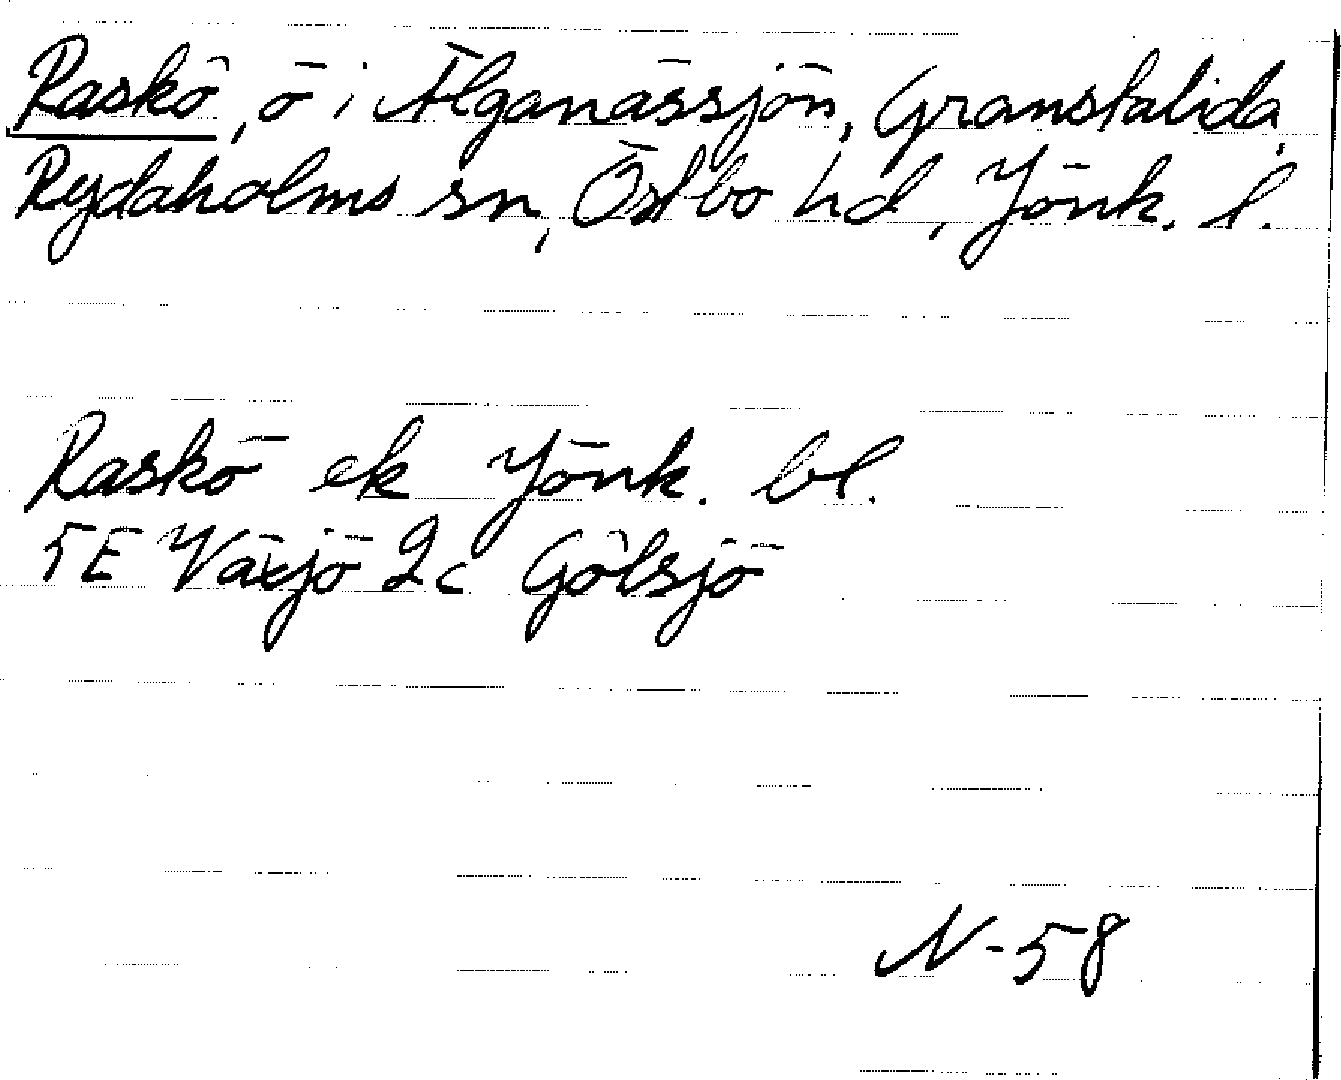 Raskö, ö i Älganässjön, Granstalida,
Rydaholms sn, Östbo hd, Jönk. l.
Raskö ek Jönk. bl.
5E Växjö 2c Gölsjö
N-58